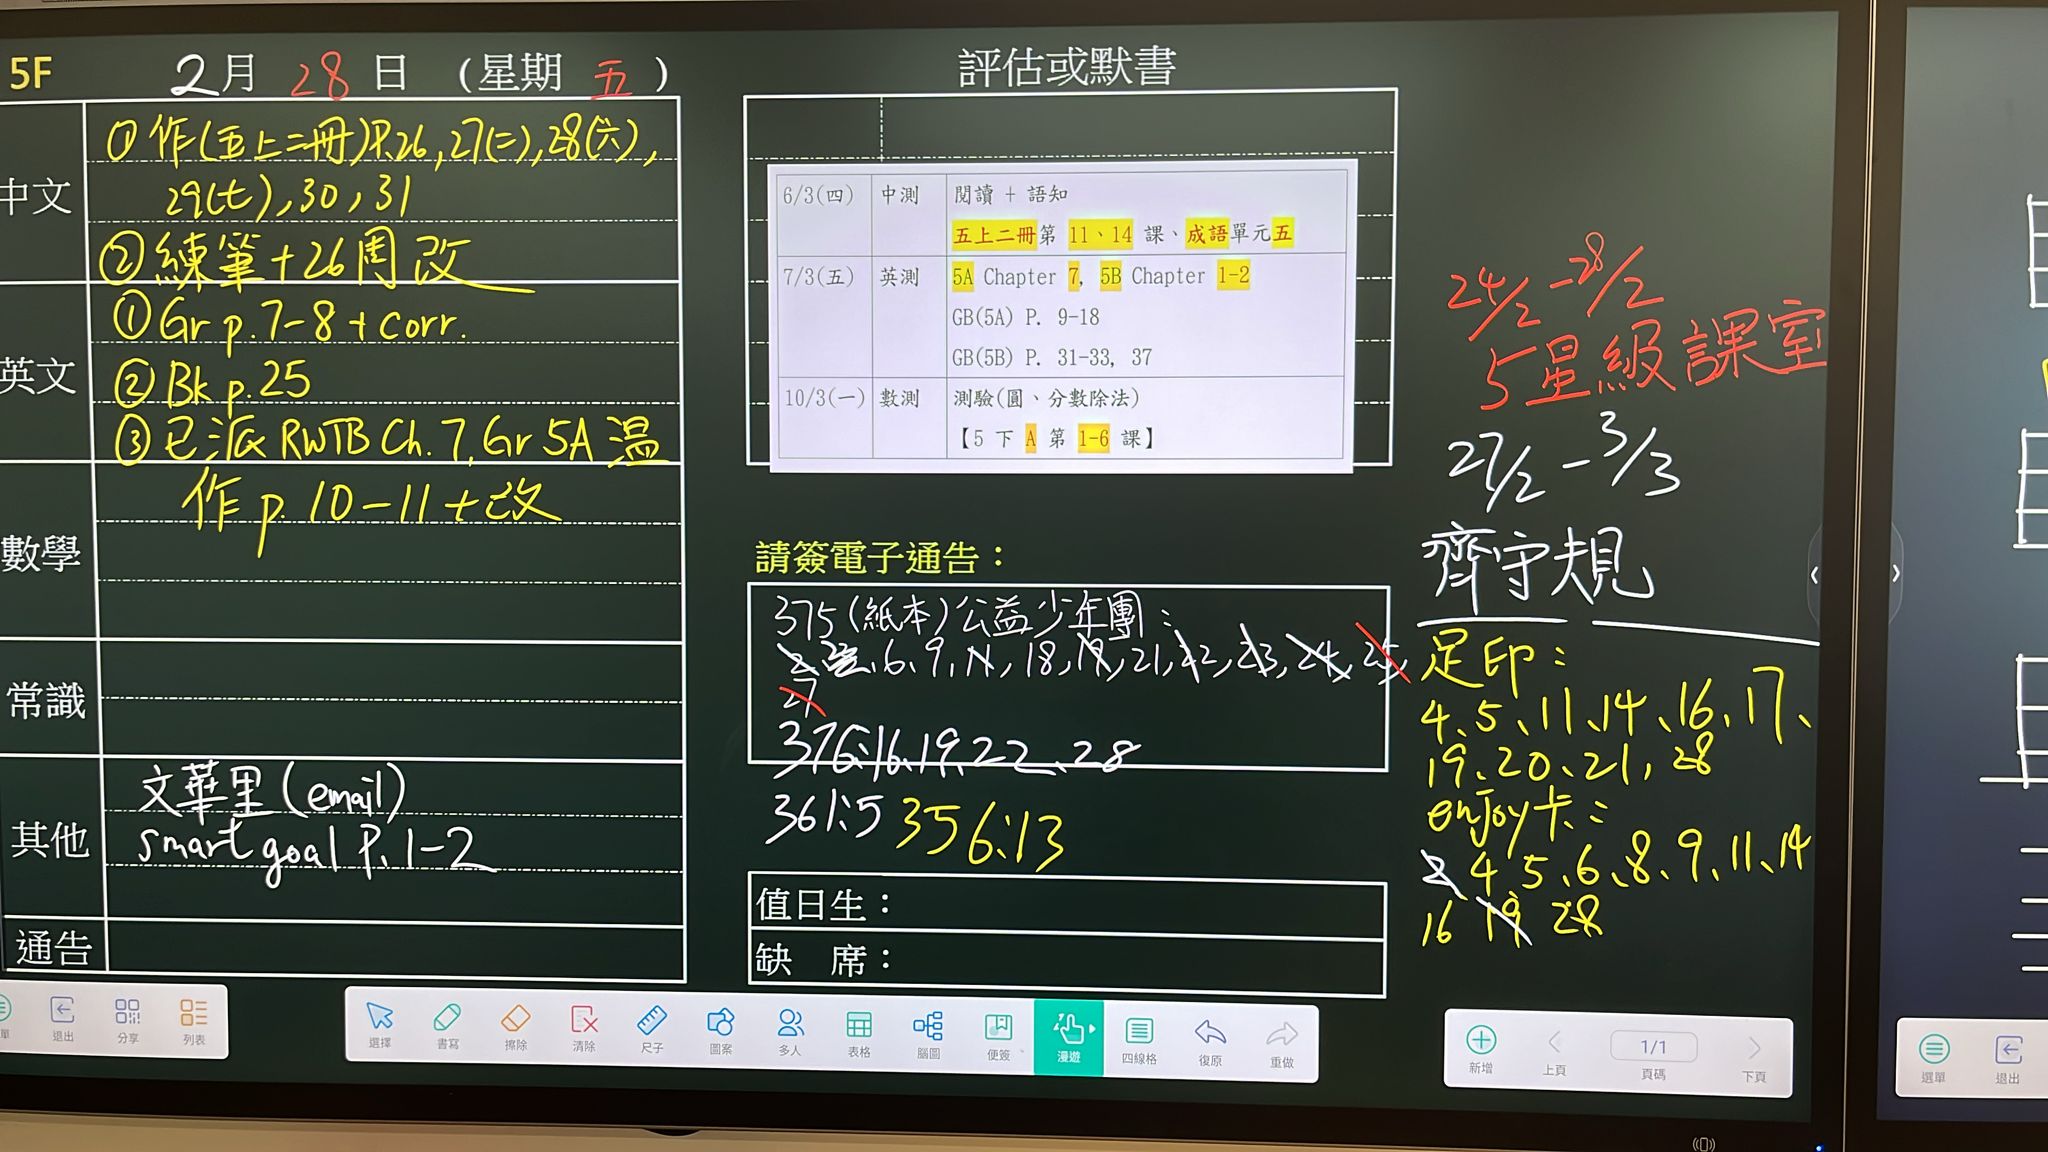 5F
2月 28 日 (星期 五)
中文
①作(五上二冊)P.26,27(二),28(六),
29(七),30,31
②練筆+26周改
英文
①Gr p.7-8 + corr.
②Bk p.25
③已派 RWTB Ch.7, Gr 5A 溫
數學
作 p. 10-11 + 改
常識
其他
文華里(email)
smart goal P.1-2
通告
評估或默書
6/3(四) 中測 閱讀 + 語知
五上二冊第 11、14 課、成語單元五
7/3(五) 英測 5A Chapter 7, 5B Chapter 1-2
GB(5A) P. 9-18
GB(5B) P. 31-33, 37
10/3(一) 數測 測驗(圓、分數除法)
【5 下 A 第 1-6 課】
請簽電子通告：
375(紙本)公益少年團：
2、6、9、11、18、19、21、22、23、24、25、
27
376:16、19、22、28
361:5 356:13
值日生：
缺 席：
24/2-28/2
5星級課室
27/2-3/3
齊守規
足印：
4、5、11、14、16、17、
19、20、21、28
enjoy卡：
2、4、5、6、8、9、11、14
16 19 28
單 退出 分享 列表
選擇 書寫 擦除 清除 尺子 圖案 多人 表格 腦圖 便簽 漫遊 四線格 復原 重做
新增 上頁 1/1 頁碼 下頁
選單 退出